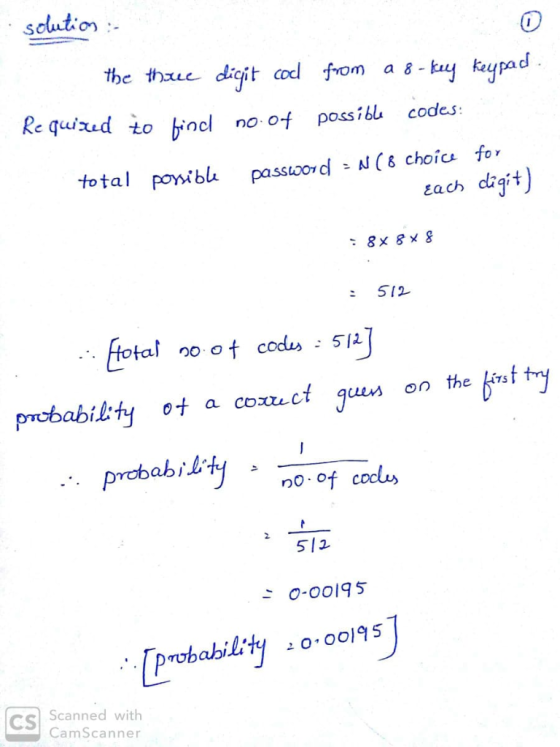 solution :-
①
the three digit cod from a 8-key keypad.
Required to find no. of possible codes:
total possible password = N (8 choice for
each digit)
= 8 x 8 x 8
= 512
∴ [total no. of codes = 512]
probability of a correct guess on the first try
∴ probability = 1 / no. of codes
= 1 / 512
= 0.00195
∴ [probability = 0.00195]
CS Scanned with
CamScanner